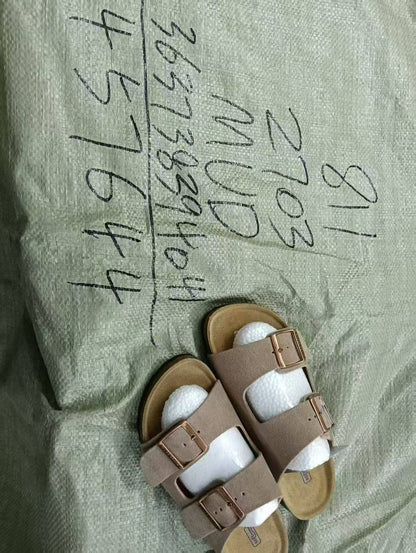 811
2703
MUD
36 37 38 39 40 41
4 5 7 6 4 4